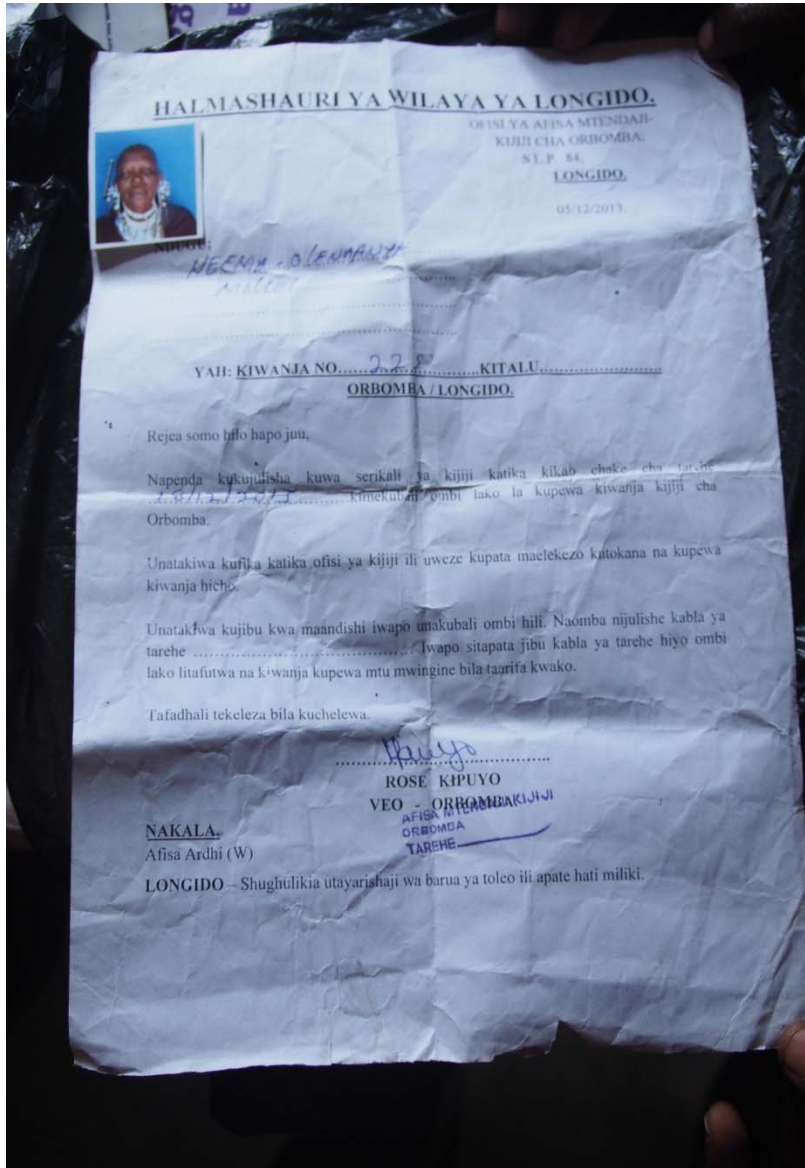 HALMASHAURI YA WILAYA YA LONGIDO.
OFISI YA AFISA MTENDAJI-
KIJIJI CHA ORBOMBA.
S L.P. 84,
LONGIDO.
05/12/2013.
NDUGU:
YAH: KIWANJA NO.....................KITALU......................
ORBOMBA / LONGIDO.
Rejea somo hilo hapo juu,
Napenda kukujulisha kuwa serikali ya kijiji katika kikao chake cha tarehe
kimekubali ombi lako la kupewa kiwanja kijiji cha
Orbomba.
Unatakiwa kufika katika ofisi ya kijiji ili uweze kupata maelekezo kutokana na kupewa
kiwanja hicho.
Unatakiwa kujibu kwa maandishi iwapo unakubali ombi hili. Naomba nijulishe kabla ya
tarehe ........................................ Iwapo sitapata jibu kabla ya tarehe hiyo ombi
lako litafutwa na kiwanja kupewa mtu mwingine bila taarifa kwako.
Tafadhali tekeleza bila kuchelewa.
ROSE KIPUYO
VEO - ORBOMBA
AFISA MTENDAJI KIJIJI
ORBOMBA
TAREHE
NAKALA.
Afisa Ardhi (W)
LONGIDO – Shughulikia utayarishaji wa barua ya toleo ili apate hati miliki.